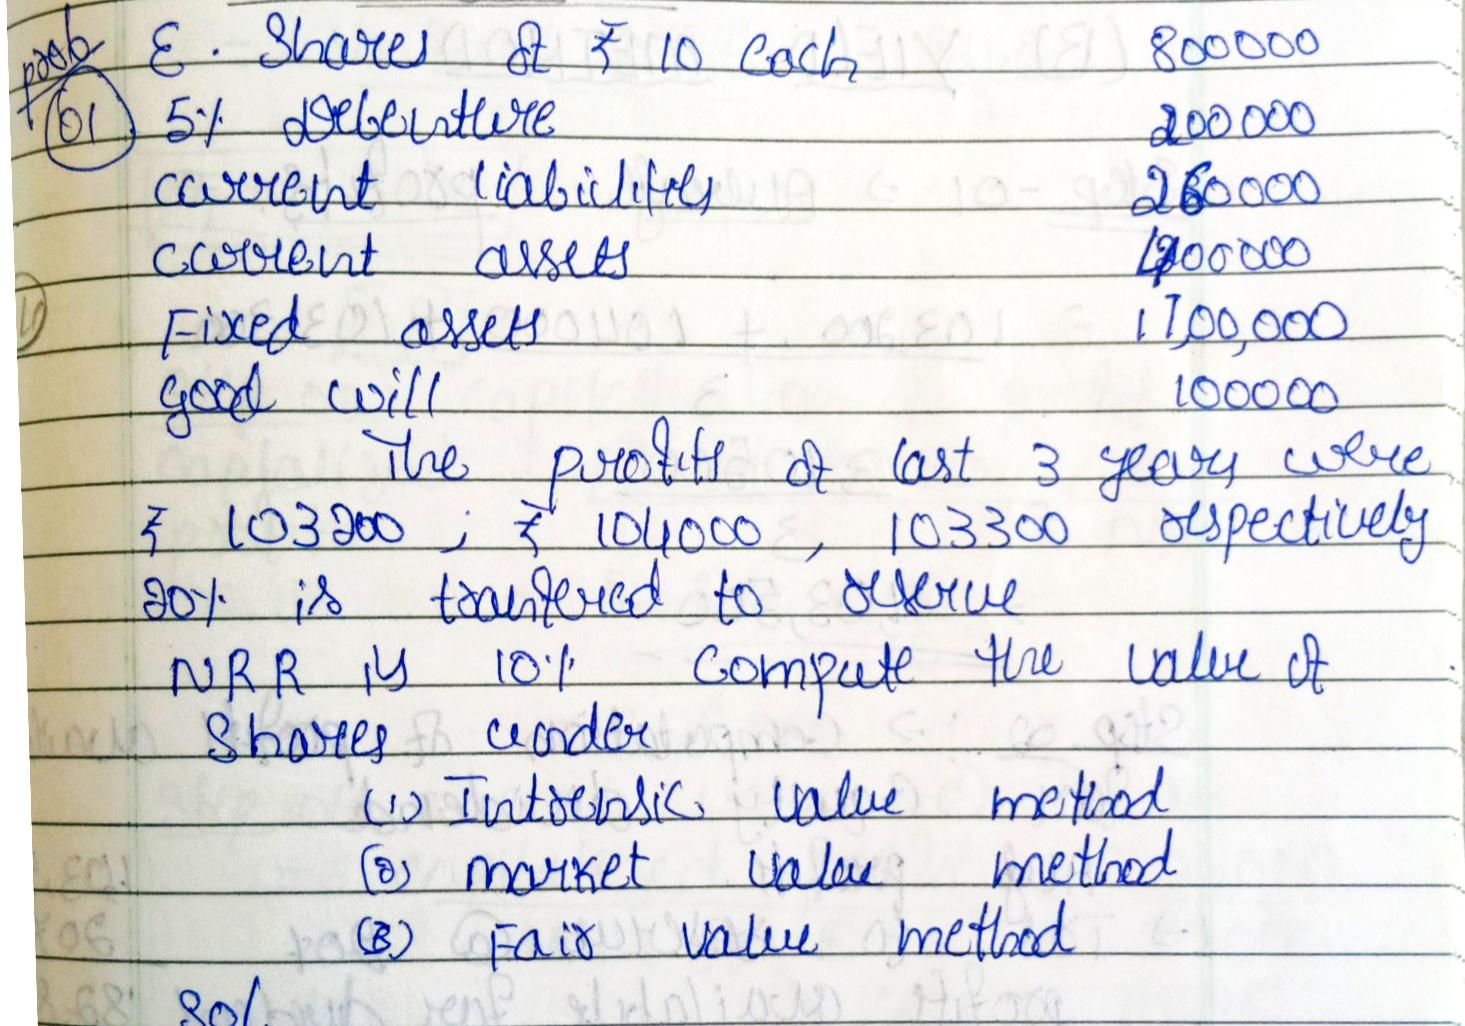 prob
01
E. Shares of ₹ 10 each 800000
5% Debenture 200000
current liabilities 260000
current assets 400000
Fixed assets 1700,000
good will 100000
The profits of last 3 years were
₹ 103200 ; ₹ 104000, 103300 respectively
20% is tranfered to reserve
NRR is 10% Compute the value of
Shares under
(1) Intrensic value method
(2) market value method
(3) Fair value method
Sol.